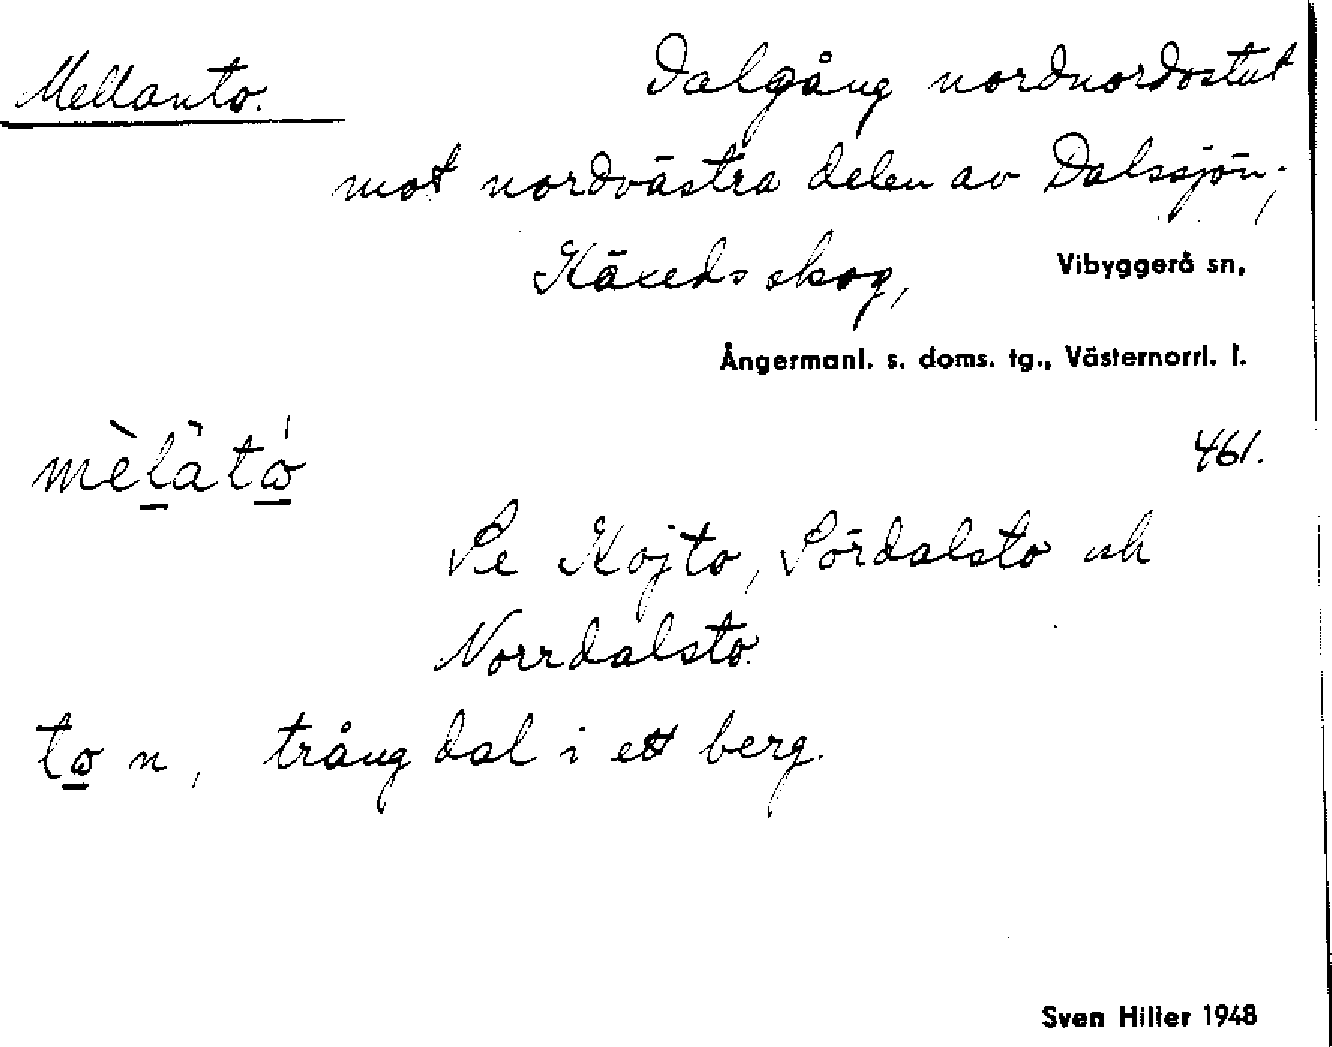 Mellanto. Dalgång nordnordostut
mot nordvästra delen av Dalssjön;
Käxeds skog, Vibyggerå sn,
Ångermanl. s. doms. tg., Västernorrl. l.
mèlàtó 461.
Se Kojto, Sördalsto och
Norrdalsto.
to n, trång dal i ett berg.
Sven Hiller 1948